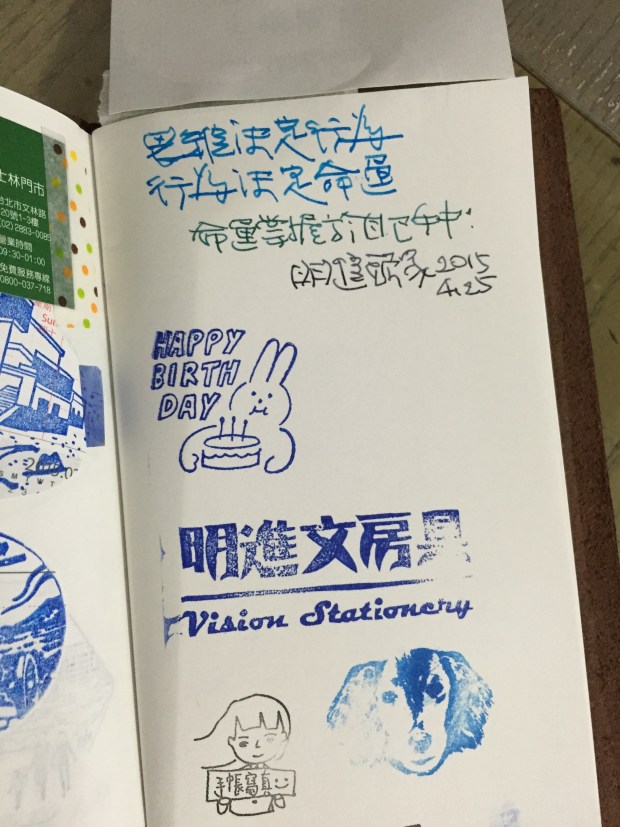 士林門市
台北市文林路
20號1-3樓
(02) 2883-0085
營業時間
09:30-01:00
免費服務專線
0800-037-718
思維決定行為
行為決定命運
命運掌握於自己手中!
明進頭家 2015
4.25
HAPPY
BIRTH
DAY
明進文房具
Vision Stationery
手帳寫真